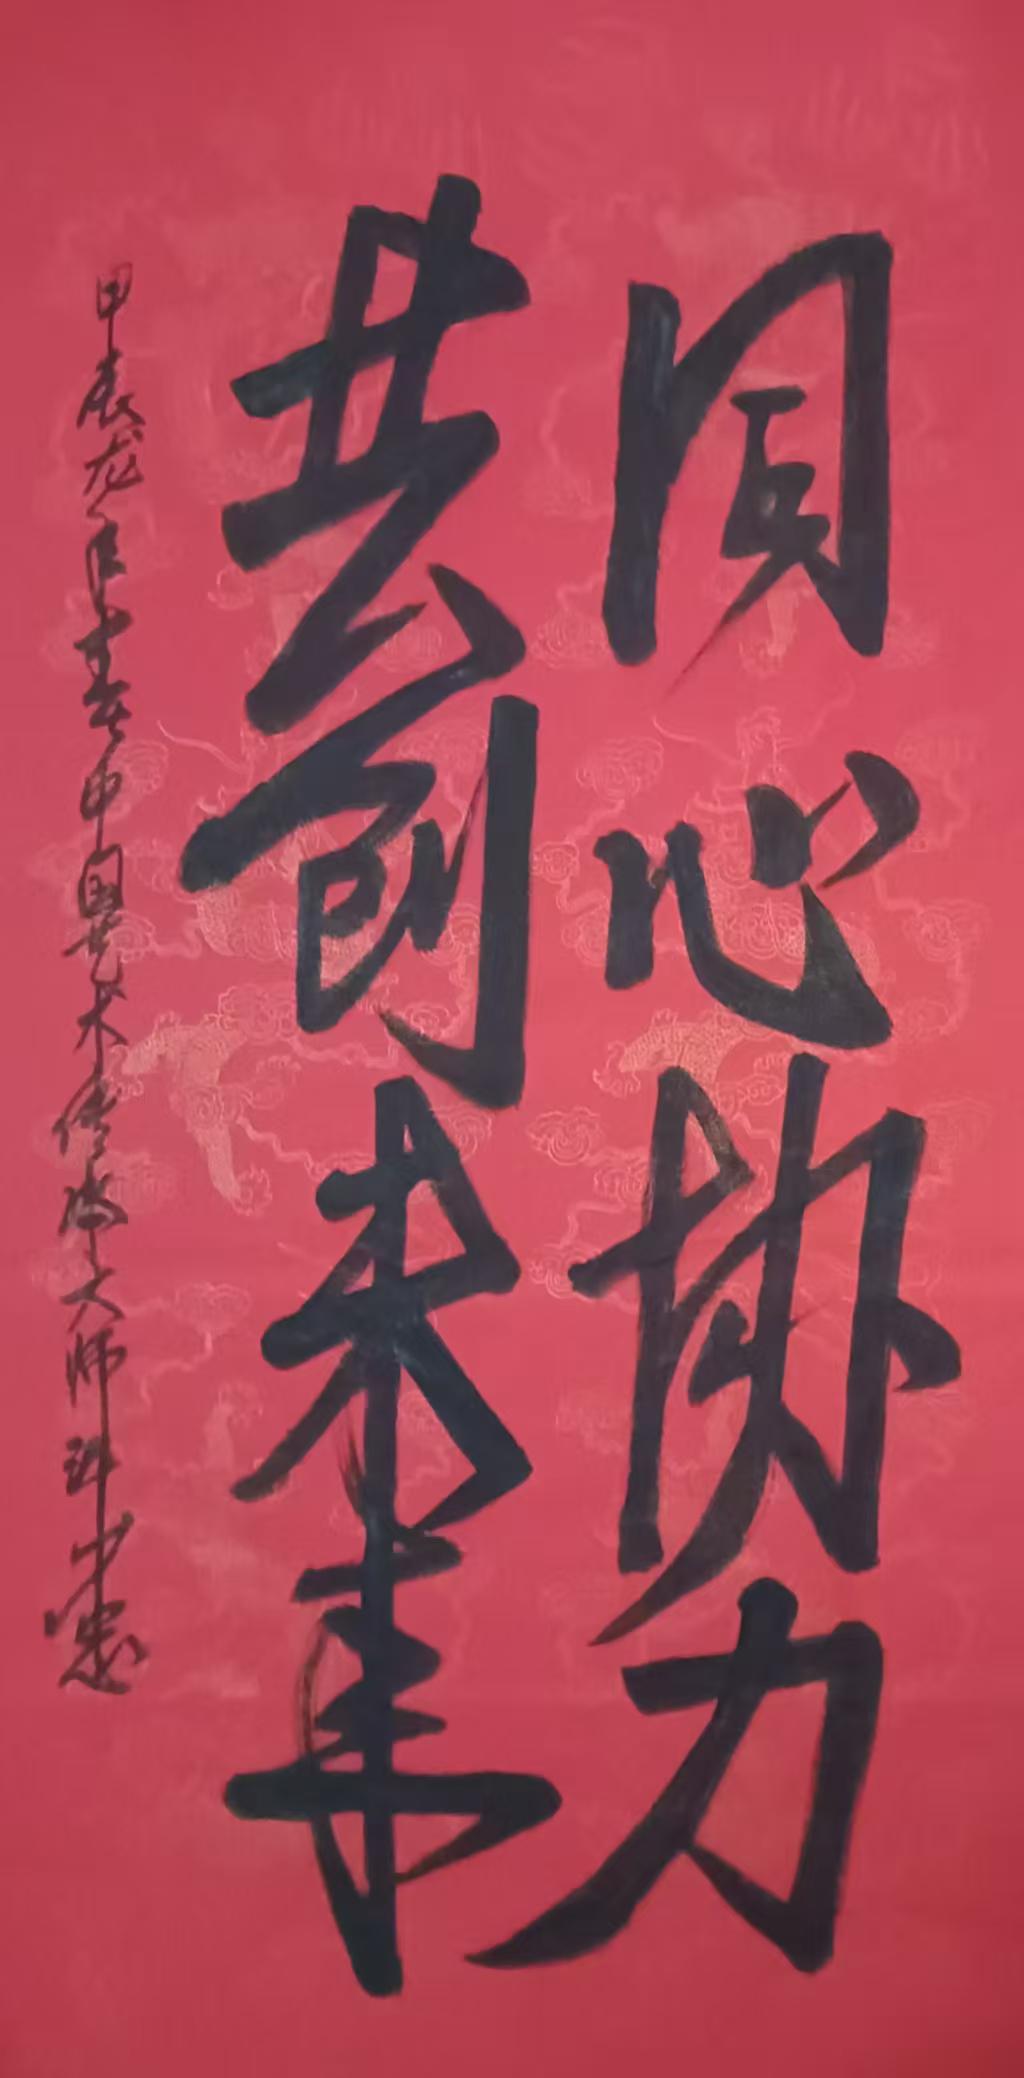 同心协力
共创未来
甲辰龙年春中国艺术传承大师许中惠